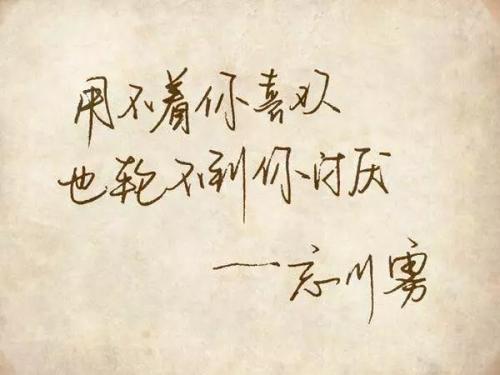 用不着你喜欢
也轮不到你讨厌
——忘川勇